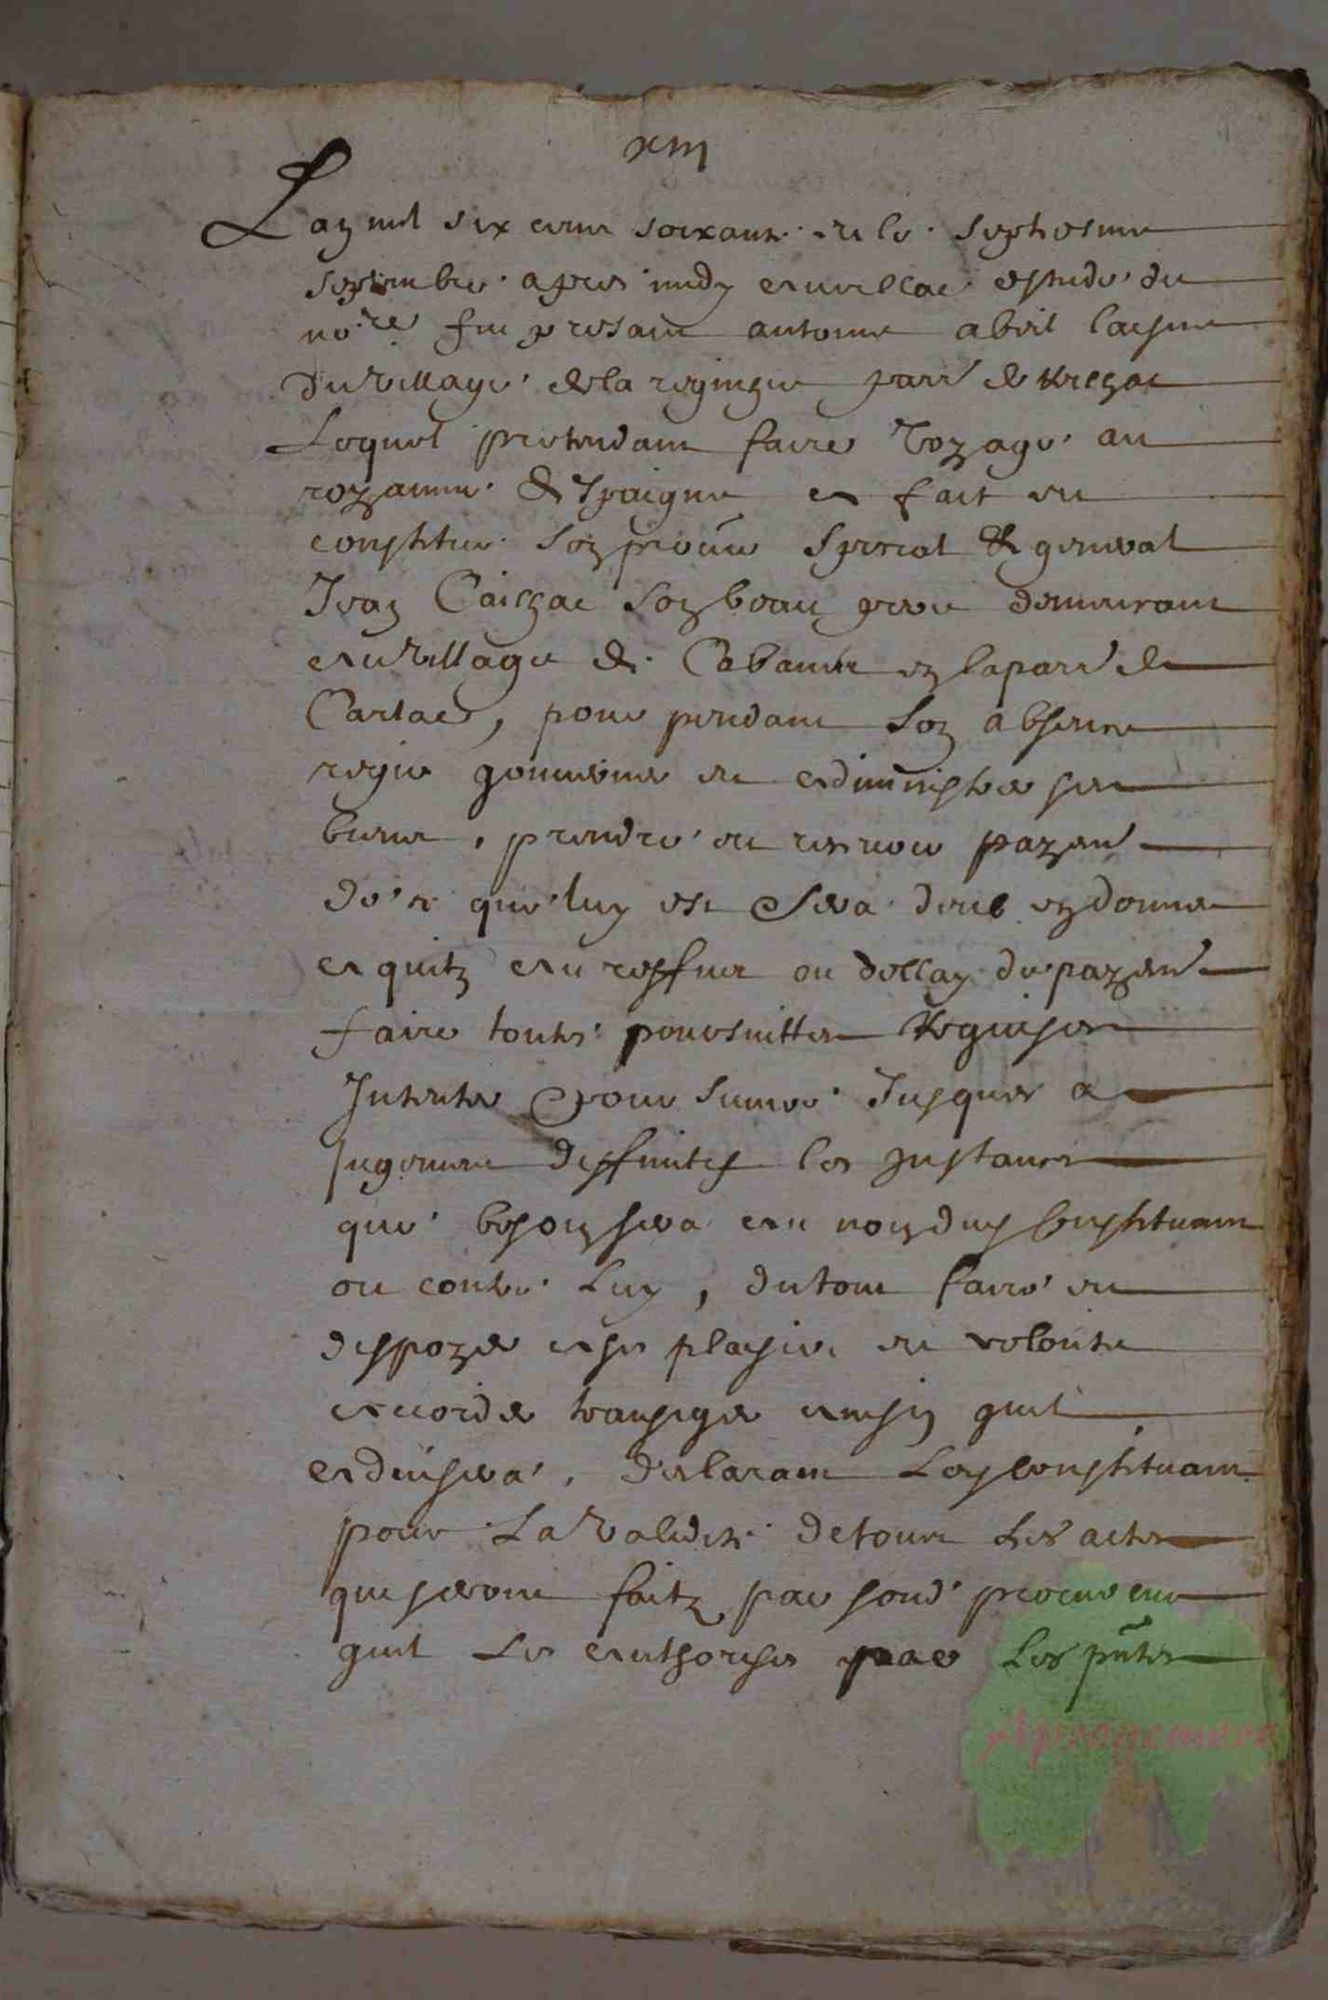 xiii
Lan mil six cens soixante et le septiesme
septembre apres midy a aurillac estude du
no.re fut presant antoine abeil laisne
du village de la reginhe parr.e de
Lequel pretendant faire voyage au
royaume despaigne a fait et
constitue son procur special & general
Jean Cailhac son beau frere demeurant
au village de Cabanes en la parr.e de
Carlac, pour pendant son absence
regir gouverner et administrer ses
biens, prendre et recevoir payem.t
de ce que luy est & sera deub en donner
aquitz au reffus ou dellay de payem.t
faire toutes poursuittes requises
Intenter & poursuivre Jusques a
Jugement deffinitif les Instances
que besoin sera au nom dud constituant
ou contre luy, du tout faire et
dispozer a son plaisir et volonte
accorder transiger ainsin quil
advisera, declarant led constituant
pour la validite de tous les actes
que seront faitz par sond procureur
quil les authorise par les pntes
Aprogemere